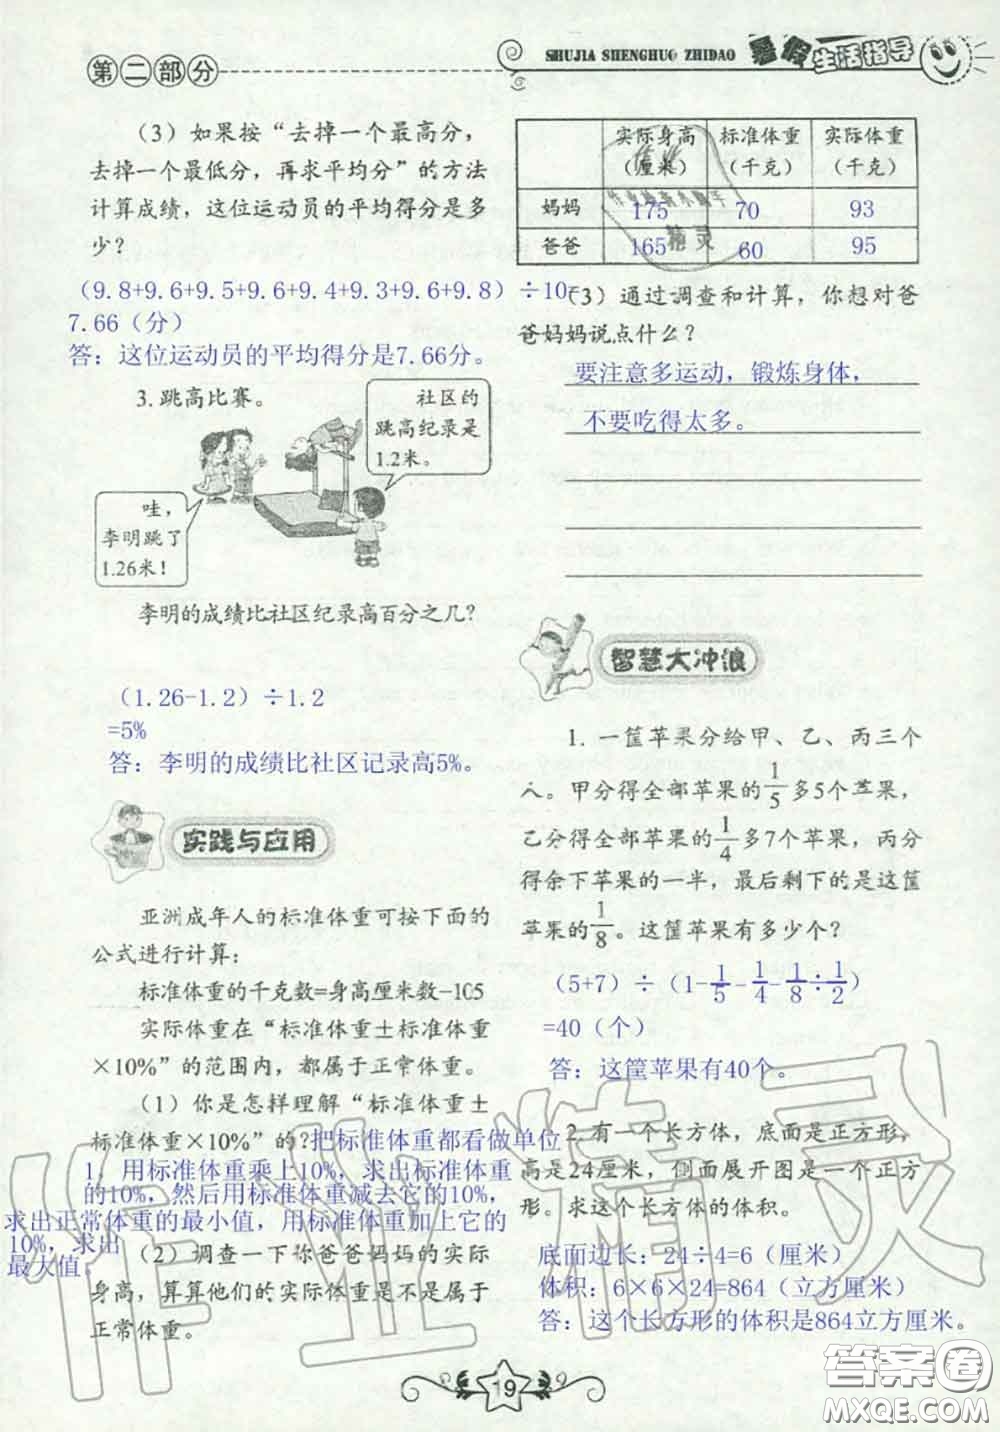 第二部分
SHUJIA SHENGHUO ZHIDAO
暑假生活指导
（3）如果按“去掉一个最高分，
去掉一个最低分，再求平均分”的方法
计算成绩，这位运动员的平均得分是多
少？
（9.8+9.6+9.5+9.6+9.4+9.3+9.6+9.8）÷10=
7.66（分）
答：这位运动员的平均得分是7.66分。
3. 跳高比赛。
社区的
跳高纪录是
1.2米。
哇，
李明跳了
1.26米！
李明的成绩比社区纪录高百分之几？
（1.26-1.2）÷1.2
=5%
答：李明的成绩比社区记录高5%。
实践与应用
亚洲成年人的标准体重可按下面的
公式进行计算：
标准体重的千克数=身高厘米数-105
实际体重在“标准体重±标准体重
×10%”的范围内，都属于正常体重。
（1）你是怎样理解“标准体重±
标准体重×10%”的？把标准体重都看做单位
1，用标准体重乘上10%，求出标准体重
的10%，然后用标准体重减去它的10%，
求出正常体重的最小值，用标准体重加上它的
10%，求出
最大值。
（2）调查一下你爸爸妈妈的实际
身高，算算他们的实际体重是不是属于
正常体重。
实际身高（厘米） 标准体重（千克） 实际体重（千克）
妈妈 175 70 93
爸爸 165 60 95
（3）通过调查和计算，你想对爸
爸妈妈说点什么？
要注意多运动，锻炼身体，
不要吃得太多。
智慧大冲浪
1. 一筐苹果分给甲、乙、丙三个
人。甲分得全部苹果的1/5多5个苹果，
乙分得全部苹果的1/4多7个苹果，丙分
得余下苹果的一半，最后剩下的是这筐
苹果的1/8。这筐苹果有多少个？
（5+7）÷（1-1/5-1/4-1/8÷1/2）
=40（个）
答：这筐苹果有40个。
2. 有一个长方体，底面是正方形，
高是24厘米，侧面展开图是一个正方
形。求这个长方体的体积。
底面边长：24÷4=6（厘米）
体积：6×6×24=864（立方厘米）
答：这个长方形的体积是864立方厘米。
19
作业精灵
答案圈
MXQE.COM